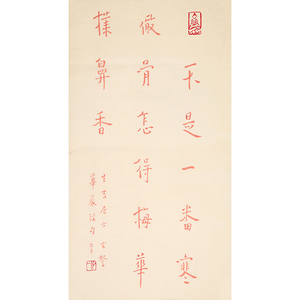 不是一番寒
徹骨怎得梅華
撲鼻香
居士